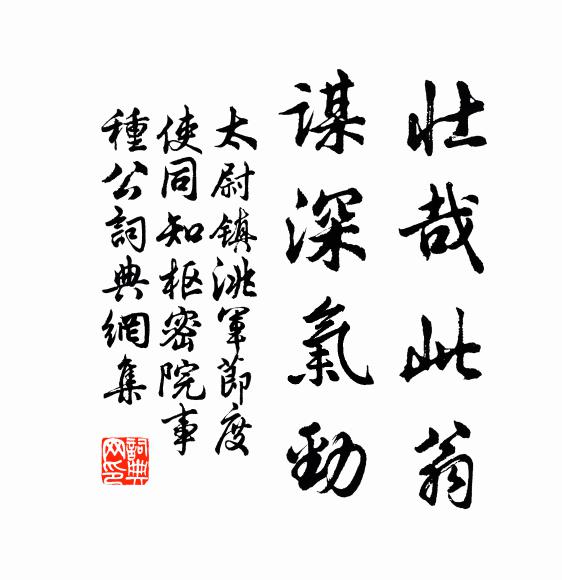 壯哉此翁
謀深氣勁
太尉鎮洮軍節度
使同知枢密院事
種公詞典網集
詞典网印